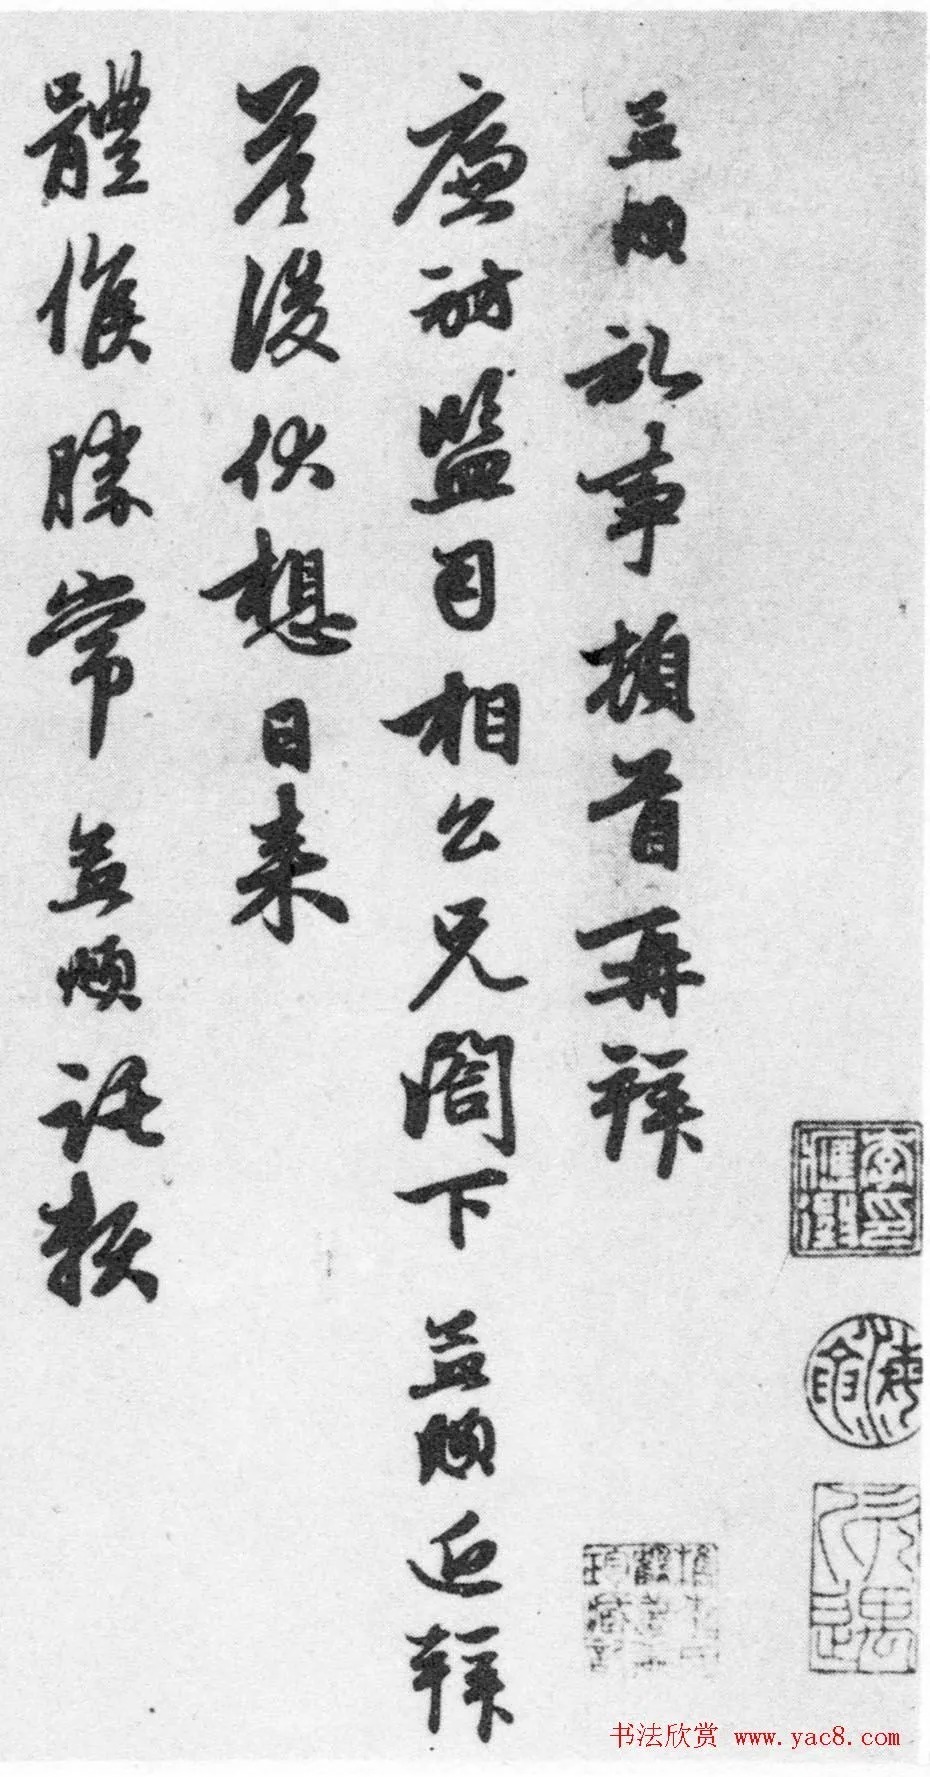 孟頫記事頓首再拜
廉訪監司相公兄閤下孟頫近拜
答後伏想日来
體候勝常孟頫託賴
书法欣赏 www.yac8.com